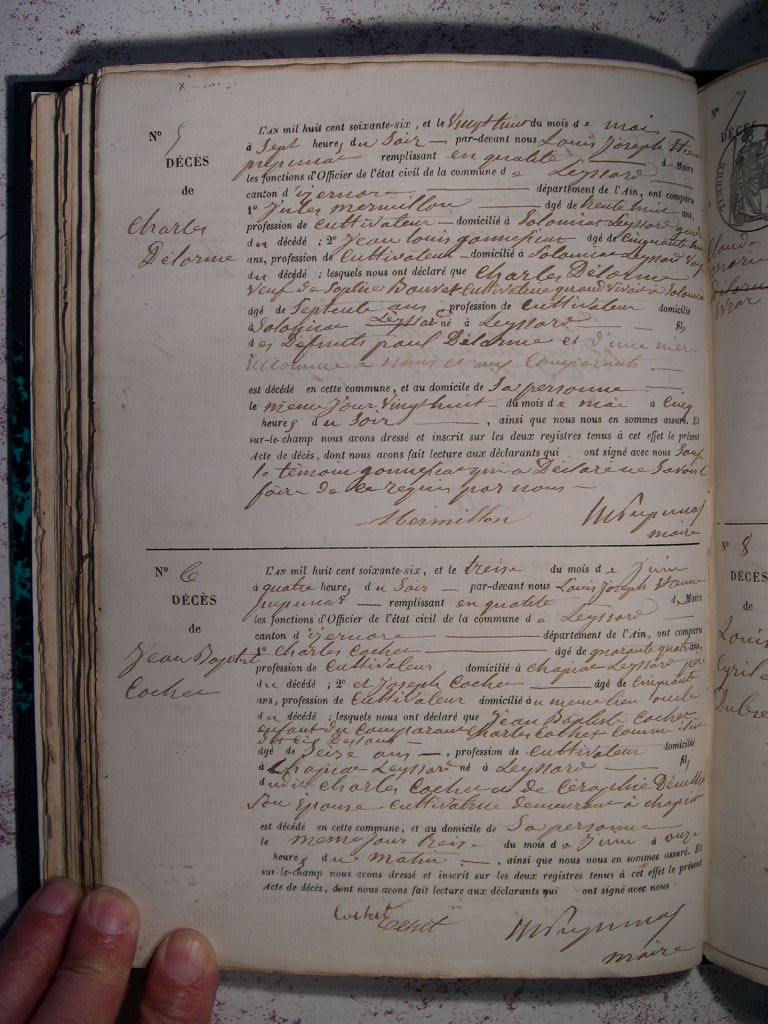 N° 5
DÉCÈS
de
Charles
Délorme
L'AN mil huit cent soixante-six, et le Vingt huit du mois de mai
à Sept heures du Soir — par-devant nous Louis Joseph
remplissant en qualité de Maire
les fonctions d'Officier de l'état civil de la commune de Leyssard
canton d'izernore département de l'Ain, ont comparu
1° Jules mermillon âgé de trente huit ans,
profession de Cultivateur — domicilié à Solomiat Leyssard
du décédé ; 2° Jean louis gonnessiat âgé de Cinquante
ans, profession de Cultivateur — domicilié à Solomiat Leyssard
du décédé ; lesquels nous ont déclaré que Charles Délorme
Veuf de Sophie Bouvet Cultivatrice quand vivait à Solomiat
âgé de Septente ans, profession de Cultivateur domicilié
à Solomiat Leyssard né à Leyssard — fils
des Défunts paul Délorme et d'une mère
inconnue à nous et aux Comparants
est décédé en cette commune, et au domicile de Sa personne
le meme jour Vingt huit — du mois de mai à Cinq
heures du Soir —, ainsi que nous nous en sommes assuré. Et
sur-le-champ nous avons dressé et inscrit sur les deux registres tenus à cet effet le présent
Acte de décès, dont nous avons fait lecture aux déclarants qui ont signé avec nous Sauf
le témoin gonnessiat qui a Déclaré ne Savoir
faire de ce requis par nous —
Mermillon
maire
N° 6
DÉCÈS
de
Jean Baptiste
Cochet
L'AN mil huit cent soixante-six, et le treise du mois de Juin
à quatre heures du Soir — par-devant nous Louis Joseph
— remplissant en qualité de Maire
les fonctions d'Officier de l'état civil de la commune de Leyssard
canton d'izernore département de l'Ain, ont comparu
1° Charles Cochet âgé de quarante quatre ans,
profession de Cultivateur domicilié à chapiat Leyssard père
du décédé ; 2° et Joseph Cochet âgé de Cinquante
ans, profession de Cultivateur domicilié au meme lieu oncle
du décédé ; lesquels nous ont déclaré que Jean Baptiste Cochet
enfant du Comparant Charles Cochet Comme il est
dit ci Dessus
âgé de Seize ans —, profession de Cultivateur domicilié
à Chapiat Leyssard né à Leyssard — fils
dudit Charles Cochet et de Céraphie
Son épouse Cultivatrice demeurant à chapiat
est décédé en cette commune, et au domicile de Sa personne
le meme jour treise du mois de Juin à onze
heures du matin —, ainsi que nous nous en sommes assuré. Et
sur-le-champ nous avons dressé et inscrit sur les deux registres tenus à cet effet le présent
Acte de décès, dont nous avons fait lecture aux déclarants qui ont signé avec nous
Cochet Cochet
maire
N° 7
DÉCÈS
Claude
marie
N° 8
DÉCÈS
de
Louis
Cyrile